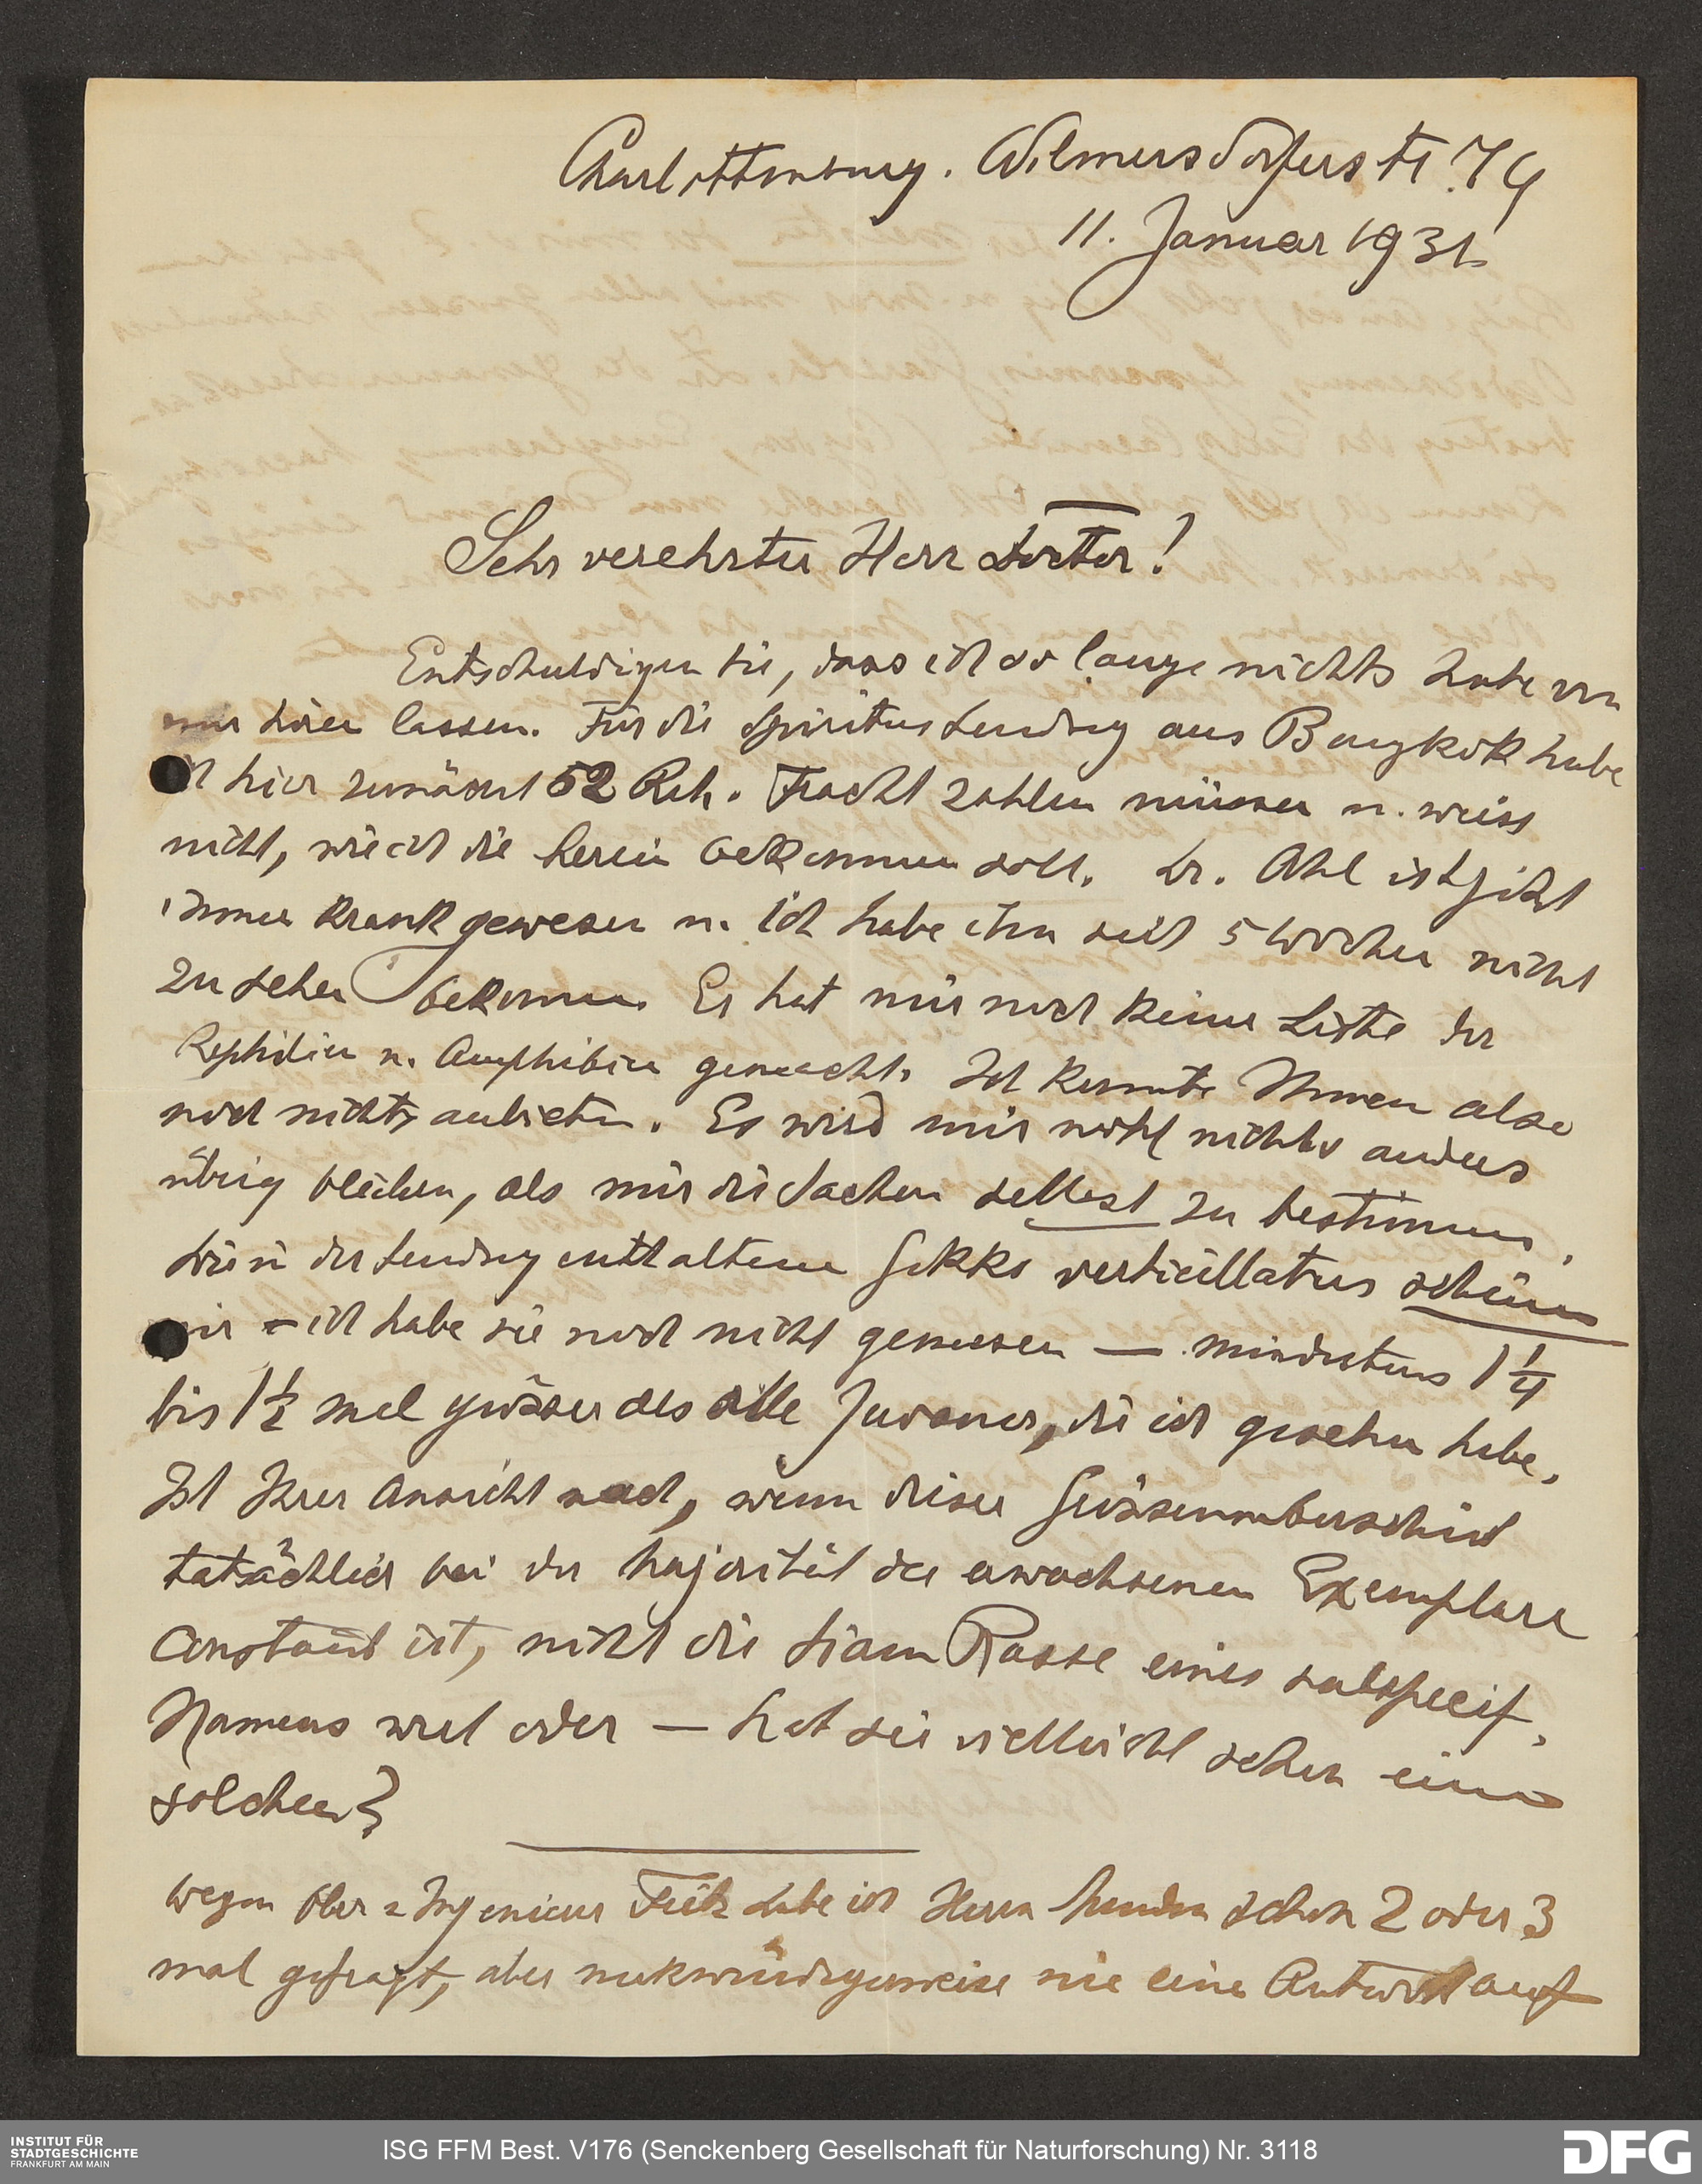 Charlottenburg. Wilmersdorferstr. 74
11. Januar 1931.
Sehr verehrter Herr Doctor!
Entschuldigen Sie, dass ich so lange nichts habe von
mir hören lassen. Für die Spiritussendung aus Bangkok habe
ich hier zunächst 52 Rch. Fracht zahlen müssen u. weiss
nicht, wie ich die herein bekommen soll. Dr. Ahl ist jetzt
immer krank gewesen u. ich habe ihn seit 5 Wochen nicht
zu sehen bekommen. Er hat mir noch keine Liste der
Reptilien u. Amphibien gemacht. Ich konnte Ihnen also
noch nichts anbieten. Es wird mir wohl nichts anders
übrig bleiben, als mir die Sachen selbst zu bestimmen.
Die in der Sendung enthaltene Gekko verticillatus scheinen
mir – ich habe sie noch nicht gemessen — mindestens 1 1/4
bis 1 1/2 mal grösser als alle Javaner, die ich gesehen habe.
Ist Ihrer Ansicht nach, wenn dieser Grössenunterschied
tatsächlich bei der Majorität der erwachsenen Exemplare
constant ist, nicht die Siam Rasse eines subspecif.
Namens wert oder — hat sie vielleicht schon einen
solchen?
Wegen Ober-Ingenieur habe ich Herrn schon 2 oder 3
mal gefragt, aber merkwürdigerweise nie eine Antwort auf
INSTITUT FÜR
STADTGESCHICHTE
FRANKFURT AM MAIN
ISG FFM Best. V176 (Senckenberg Gesellschaft für Naturforschung) Nr. 3118
DFG